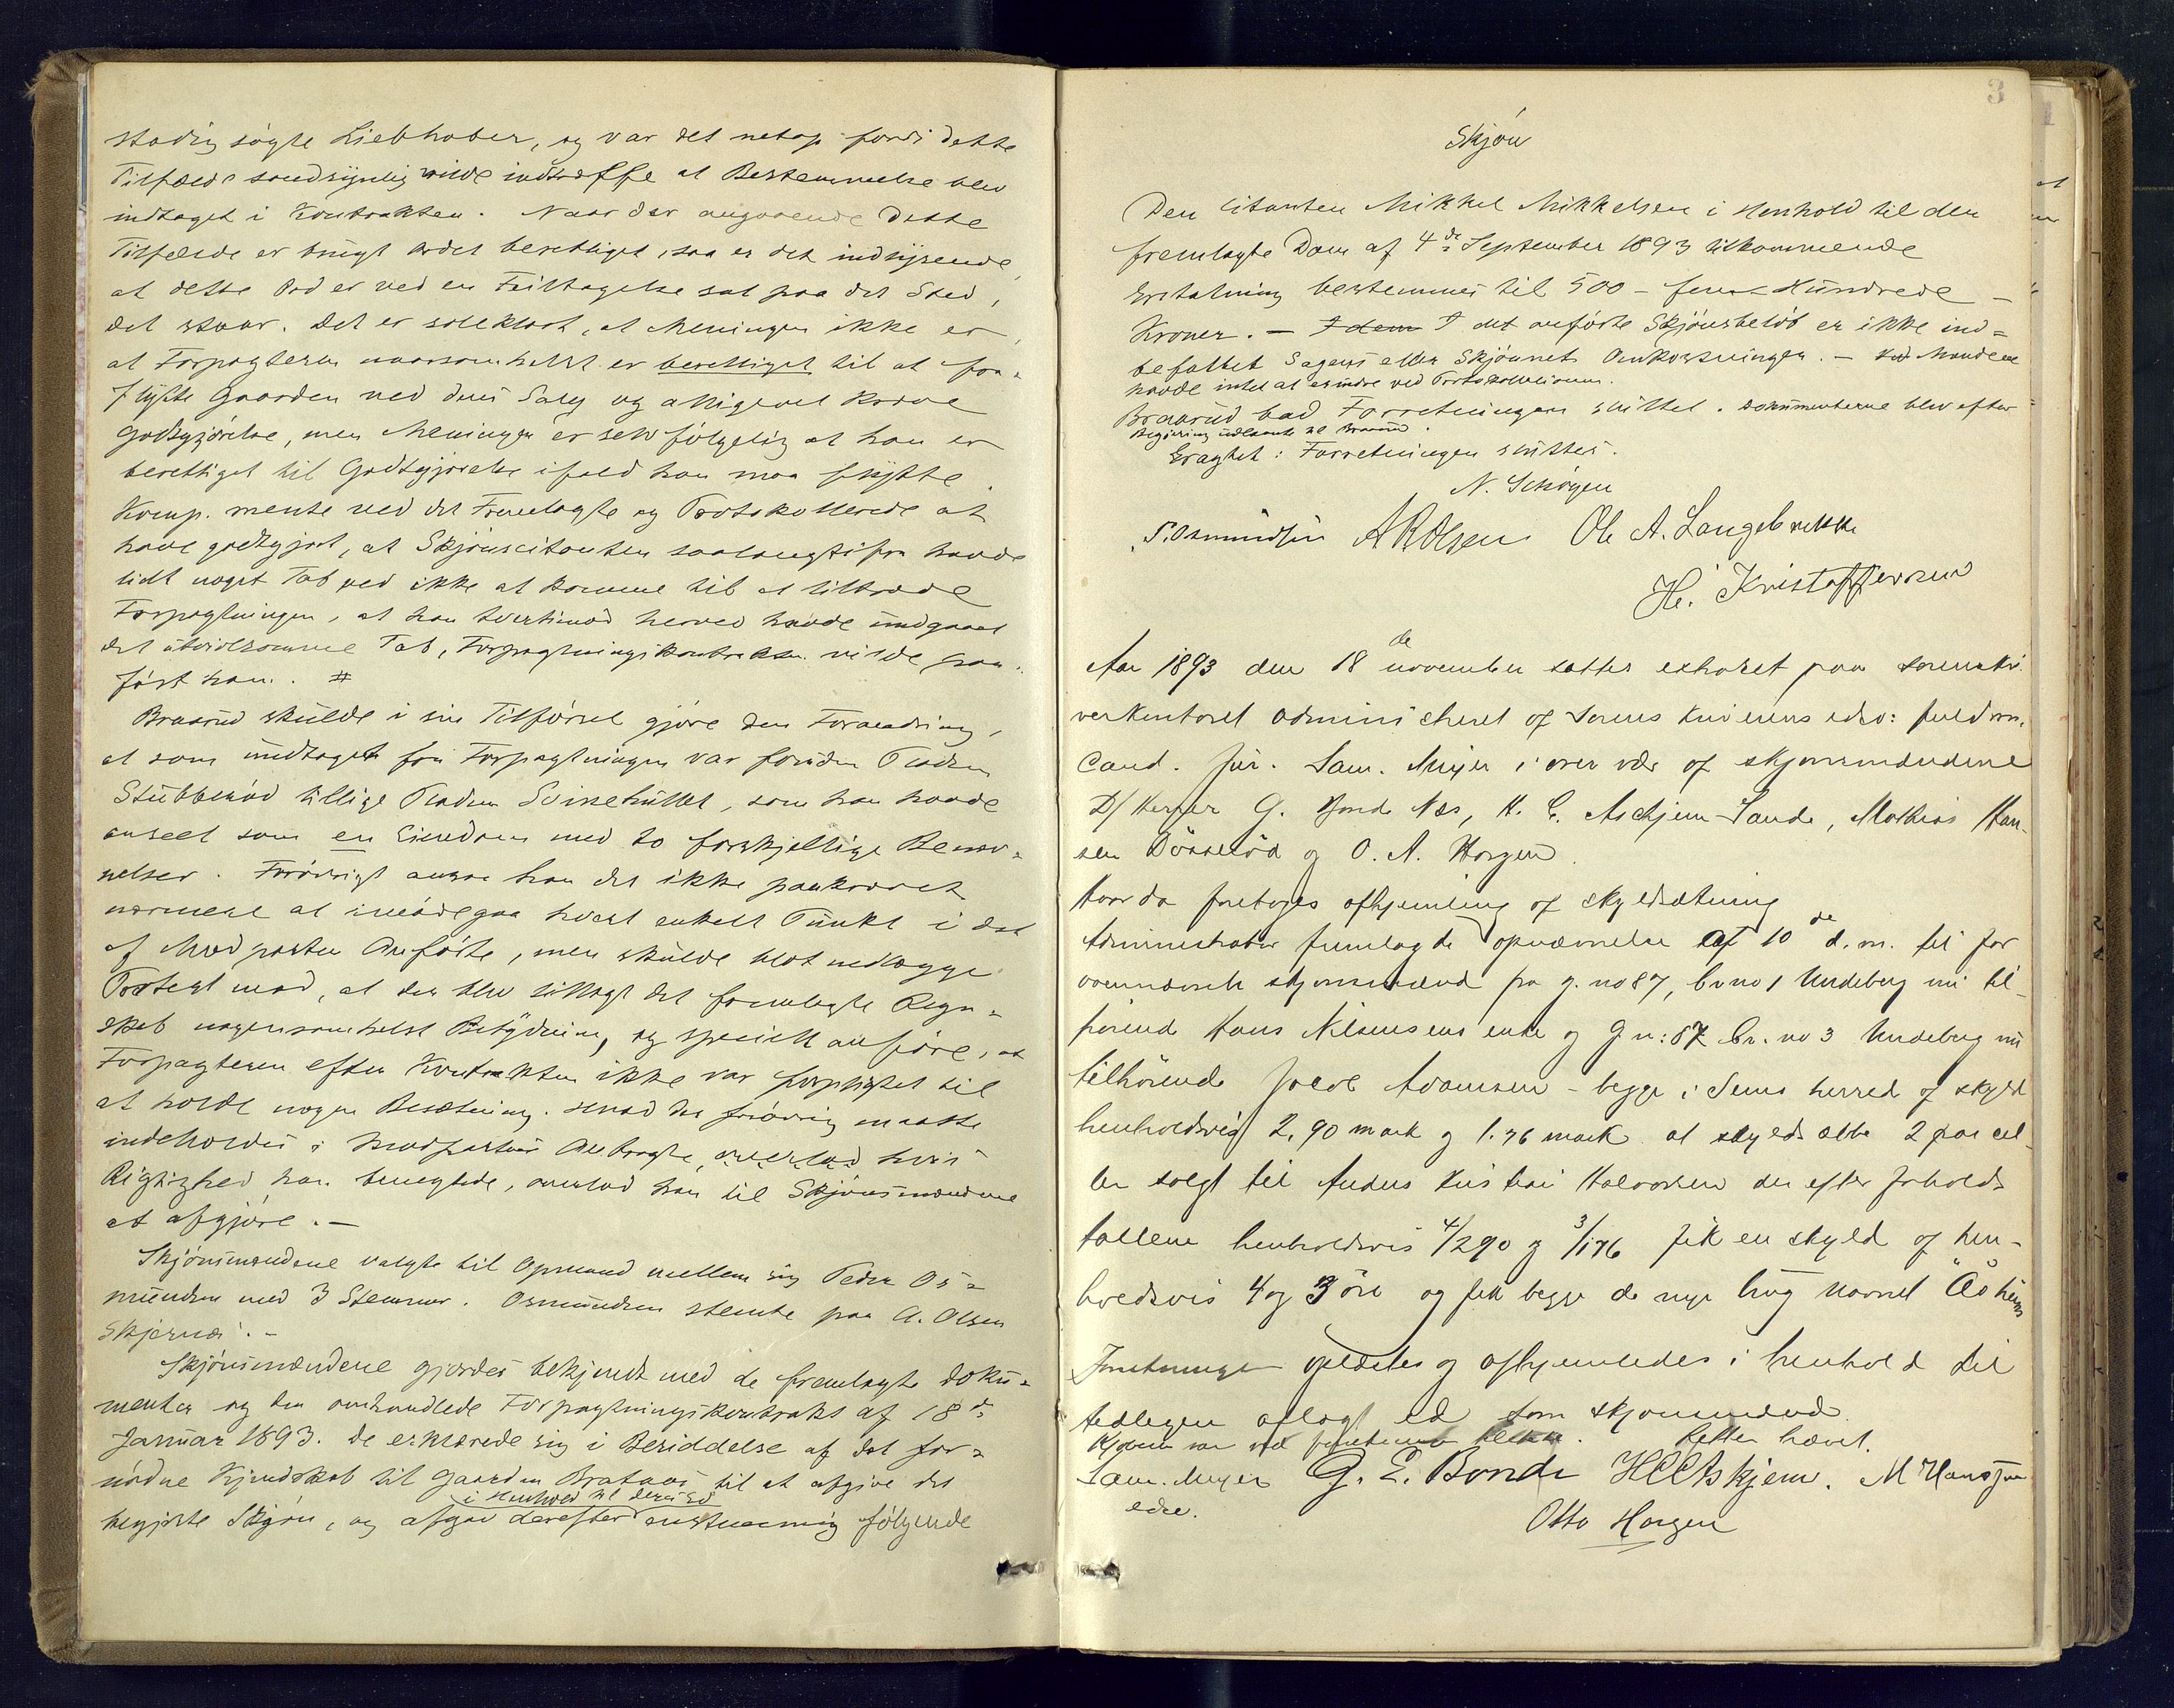 stadig søgte Liebhaber, og var det netop fordi dette
Tilfælde sandsynlig vilde indtræffe at Bestemmelse blev
indtaget i Kontrakten. Naar der angaaende dette
Tilfælde er brugt Ordet berettiget, saa er det indlysende,
at dette Ord er ved en Feiltagelse sat paa det Sted,
det staar. Det er soleklart, at Meningen ikke er,
at Forpagteren naarsomhelst er berettiget til at fra-
flytte Gaarden ved dens Salg og alligevel kræve
Godtgjørelse, men Meningen er selvfølgelig at han er
berettiget til Godtgjørelse ifald han maa flytte.
Komp. mente ved det Fremlagte og Protokollerede at
have godtgjort, at Skjønscitanten saalangtifra havde
lidt noget Tab ved ikke at komme til at tiltræde
Forpagtningen, at han tvertimod herved havde undgaaet
det utvivlsomme Tab, Forpagtningskontrakten vilde paa-
ført ham. #
Braarud skulde i sin Tilførsel gjøre den Forandring,
at som undtaget fra Forpagtningen var foruden Pladsen
Stubberød tillige Pladsen Svinehullet, som han havde
anseet som en Eiendom med to forskjellige Benæv-
nelser. Forøvrigt ansaa han det ikke paakrævet
nærmere at imødegaa hvert enkelt Punkt i det
af Modparten Anførte, men skulde blot nedlægge
Protest mod, at der blev tillagt det fremlagte Regn-
skab nogensomhelst Betydning, og specielt anføre, at
Forpagteren efter Kontrakten ikke var forpligtet til
at holde nogen Besætning. Hvad der forøvrig maatte
indeholdes i Modpartens Anbragte, hvis
Rigtighed han benegtede, overlod han til Skjønsmændene
at afgjøre. —
Skjønsmændene valgte til Opmand mellem sig Peder Os-
mundsen med 3 Stemmer. Osmundsen stemte paa A. Olsen
Skjernæs. —
Skjønsmændene gjordes bekjendt med de fremlagte Doku-
menter og den omhandlede Forpagtningskontrakt af 18de
Januar 1893. De erklærede sig i Besiddelse af det for-
nødne Kjendskab til Gaarden Brataas til at afgive det
i Henhold til deres Ed
begjærte Skjøn, og afgav derefter enstemmig følgende
3
Skjøn
Den Citanten Mikkel Mikkelsen i Henhold til den
fremlagte Dom af 4de September 1893 tilkommende
Erstatning bestemmes til 500 – fem Hundrede –
Kroner. — I dem I det anførte Skjønsbeløb er ikke ind-
befattet Sagens eller Skjønnets Omkostninger. — Mændene
havde intet at erindre ved Protokollationen.
Braarud bad Forretningen sluttet. Dokumenterne blev efter
Begjæring udlaante til Braarud.
Eragtet: Forretningen sluttes.
N. Schøyen
P. Osmundsen A R Olsen Ole A. Langebrekke
H. Kristoffersen
Aar 1893 den 18de november sattes extraret paa sorenskri-
verkontoret administreret af Sorenskriverens edsv: fuldm.
Cand. jur. Sam. Meyer i overvær af skjønsmændene
D/Herrer G. Bonde Næs, H. C. Aschjem Sande, Mathias Han-
sen og O. A. Horgen.
Hvorda foretoges afhjemling af skyldsætning
Administrator fremlagde opnævnelse af 10de d.m. til for
ovennævnte skjønsmænd fra g.no 87, br no 1 Undeberg nu til-
hørende Hans Nilsensens enke og Gn: 87 br. no 3 Undeberg nu
tilhørende Jacob Adamsen – begge i Sems herred af skyld
henholdsvis 2,90 mark og 1.76 mark at skyldsætte 2 parcel-
ler solgt til Anders Kristian Halvorsen der efter forholds
tallene henholdsvis 4/290 og 3/176 fik en skyld af hen-
holdsvis 4 og 3 øre og fik begge de nye brug navnet "Aaheim
Forretningen oplæstes og afhjemledes i henhold til
tidligere aflagt ed som skjønsmænd.
Retten hævet.
Sam. Meyer G. E. Bonde H C Askjem. M Hansen
edsv.
Otto Horgen